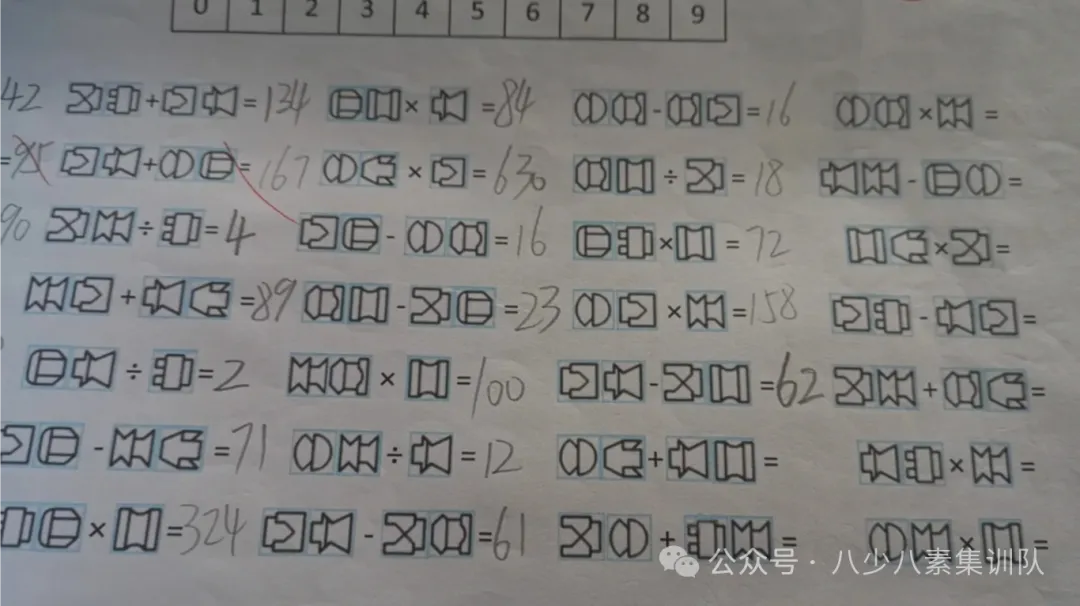 0 1 2 3 4 5 6 7 8 9
42 + =134 × =84 - =16 × =
= + =167 × =630 ÷ =18 - =
90 ÷ =4 - =16 × =72 × =
+ =89 - =23 × =158 - =
÷ =2 × =100 - =62 + =
- =71 ÷ =12 + = × =
× =324 - =61 + = × =
公众号·八少八素集训队